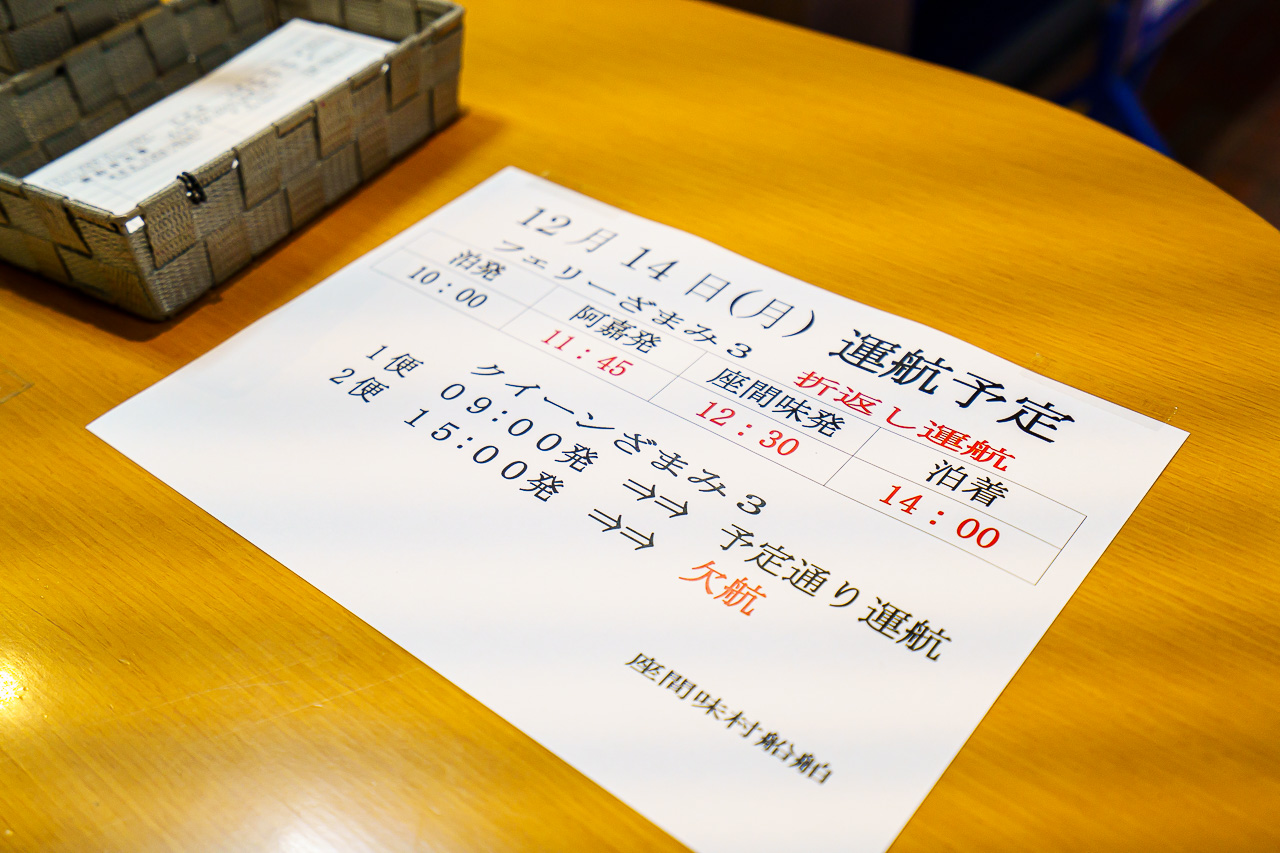 12月14日(月) 運航予定
フェリーざまみ3 折返し運航
泊発 阿嘉発 座間味発 泊着
10:00 11:45 12:30 14:00
クイーンざまみ3
1便 09:00発 ⇒⇒ 予定通り運航
2便 15:00発 ⇒⇒ 欠航
座間味村船舶